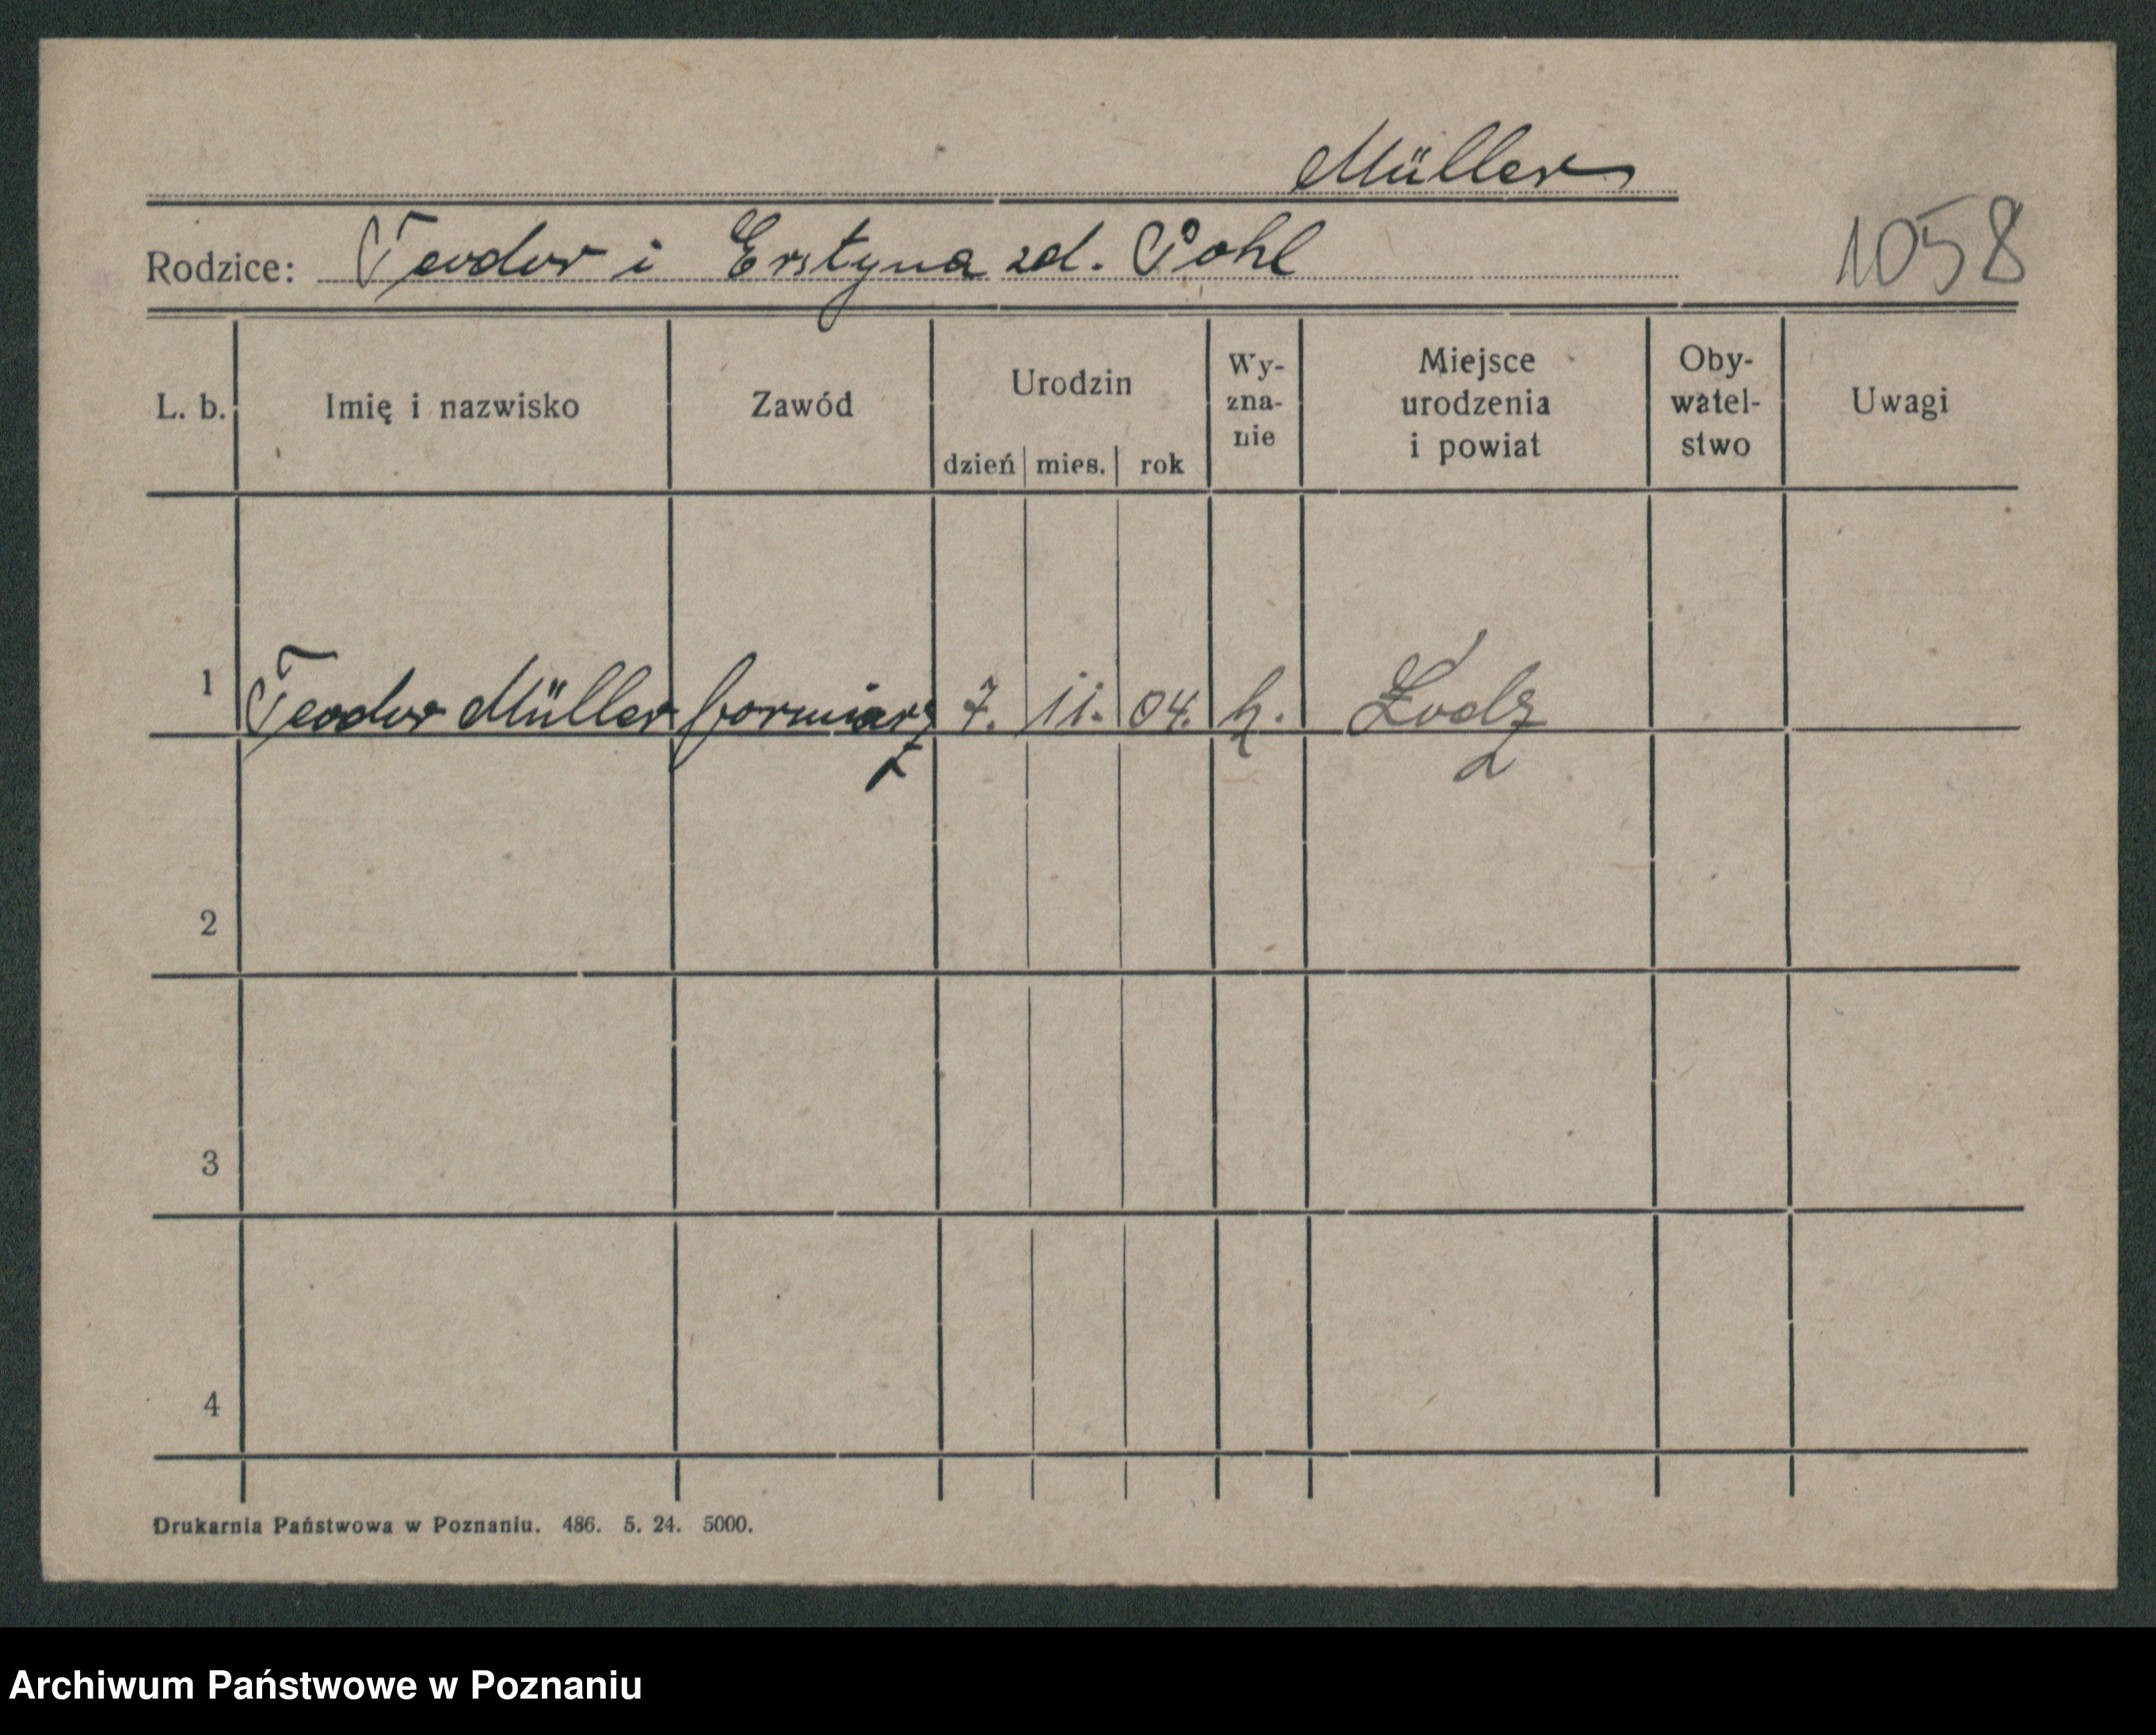 Müller
Rodzice: Teodor i Erstyna zd. Pohl
1058
L. b. Imię i nazwisko Zawód Urodzin dzień mies. rok Wy-zna-nie Miejsce urodzenia i powiat Oby-watel-stwo Uwagi
1 Teodor Müller formiarz 7. 11. 04. k. Łódz
2
3
4
Drukarnia Państwowa w Poznaniu. 486. 5. 24. 5000.
Archiwum Państwowe w Poznaniu